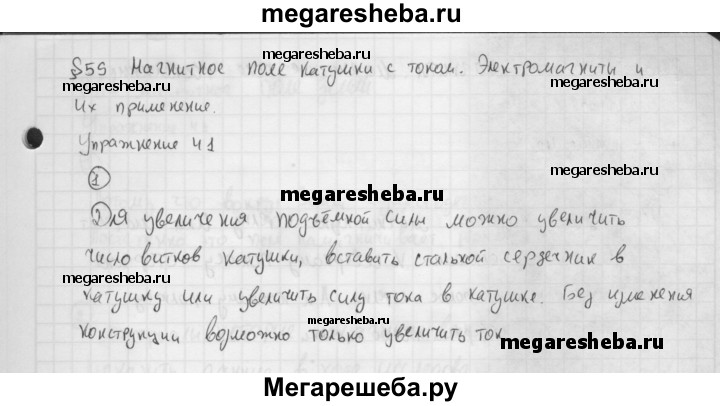 megaresheba.ru
§59 Магнитное поле катушки с током. Электромагниты и
megaresheba.ru
megaresheba.ru
их применение.
Упражнение 41
megaresheba.ru
1
megaresheba.ru
Для увеличения подъёмной силы можно увеличить
число витков катушки, вставить стальной сердечник в
megaresheba.ru
катушку или увеличить силу тока в катушке. Без изменения
megaresheba.ru
конструкции возможно только увеличить ток
megaresheba.ru
Мегарешеба.ру